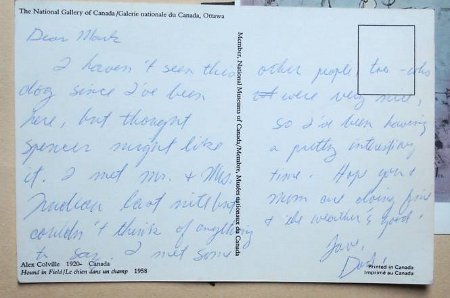 The National Gallery of Canada/Galerie nationale du Canada, Ottawa
Dear Mark
I haven't seen this
dog since I've been
here, but thought
Spencer might like
it. I met Mr. & Mrs.
Trudeau last nite but
couldn't think of anything
to say. I met some
Alex Colville 1920- Canada
Hound in Field/Le chien dans un champ 1958
Member, National Museums of Canada/Membre, Musées nationaux du Canada
other people, too - who
were very nice,
so I've been having
a pretty interesting
time. Hope you &
Mum are doing fine
& the weather's good!
Love,
Printed in Canada
Imprimé au Canada